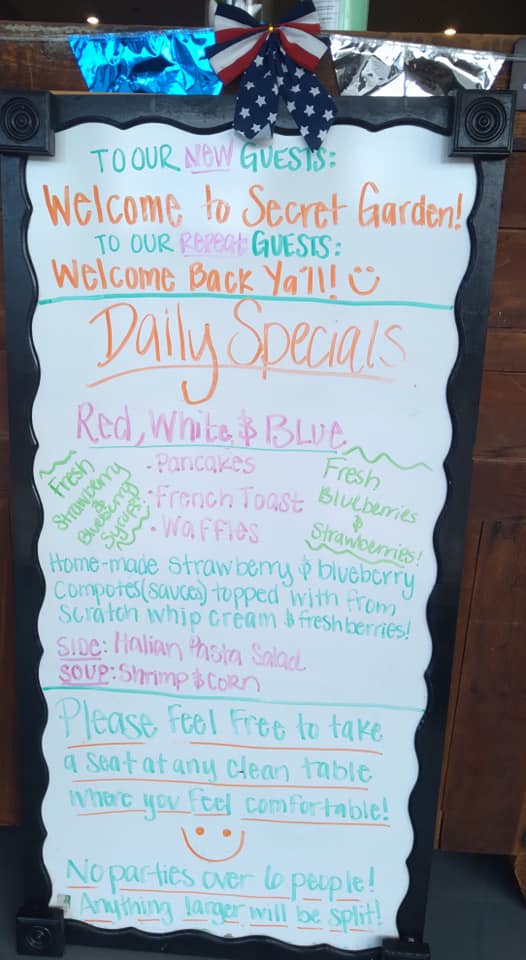 TO OUR NEW GUESTS:
Welcome to Secret Garden!
TO OUR REPEAT GUESTS:
Welcome Back Ya'll!
Daily Specials
Red, White, & Blue
• Pancakes
• French Toast
• Waffles
Fresh
Strawberry
&
Blueberry
Syrups!
Fresh
Blueberries
&
Strawberries!
Home-made strawberry & blueberry
Compotes (sauces) topped with from
Scratch whip cream & fresh berries!
SIDE: Italian Pasta Salad
SOUP: Shrimp & Corn
Please Feel Free to take
a seat at any clean table
where you feel comfortable!
No parties over 6 people!
Anything larger will be split!